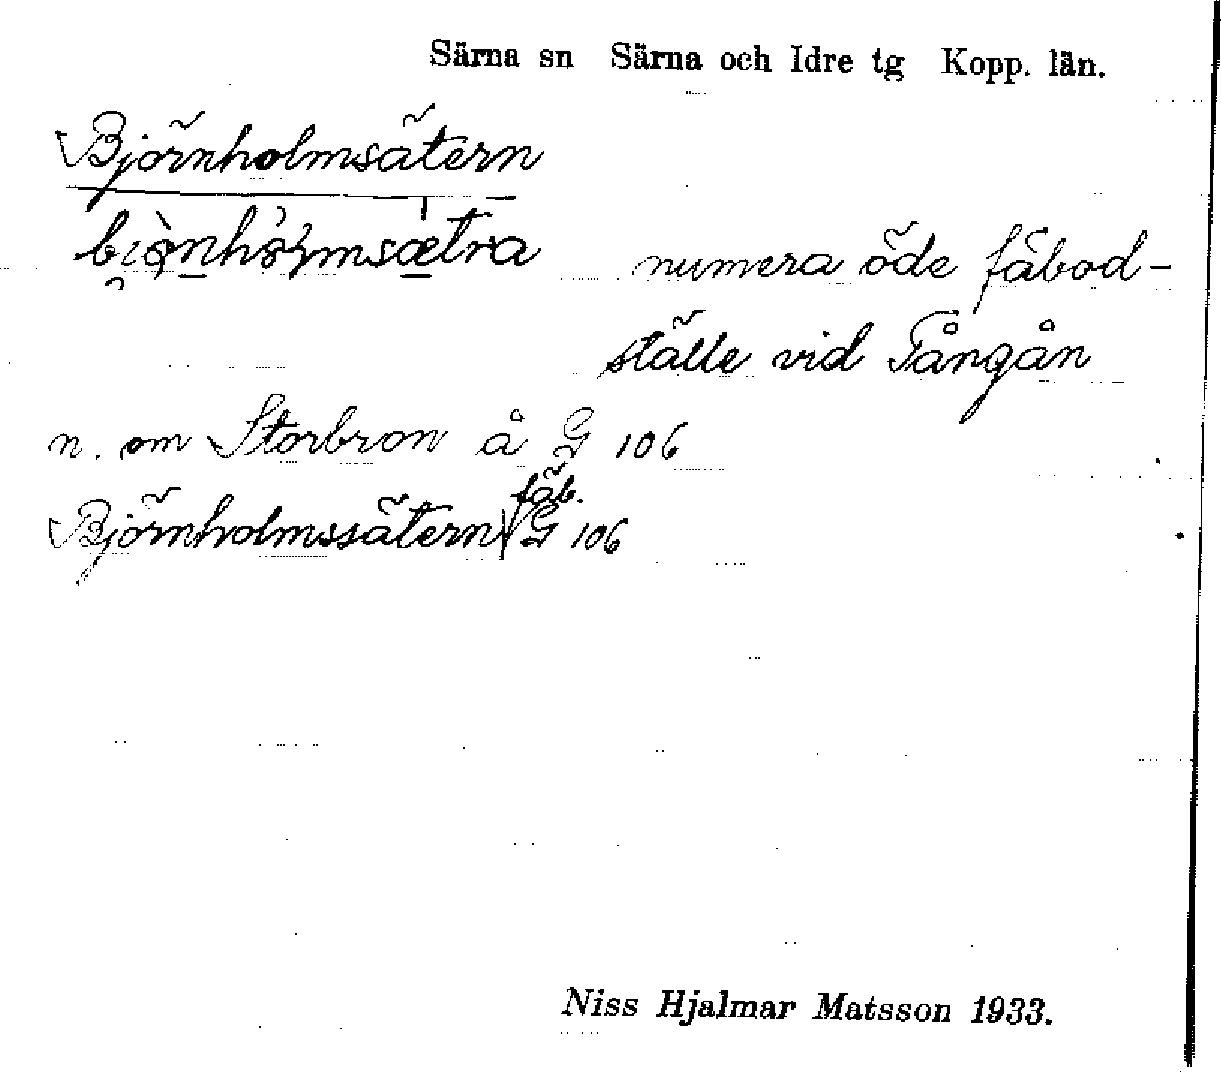 Särna sn Särna och Idre tg Kopp. län.
Björnholmsätern
numera öde fäbod-
ställe vid Tångån
n. om Storbron å G 106
fäb.
Björnholmssätern G 106
Niss Hjalmar Matsson 1933.